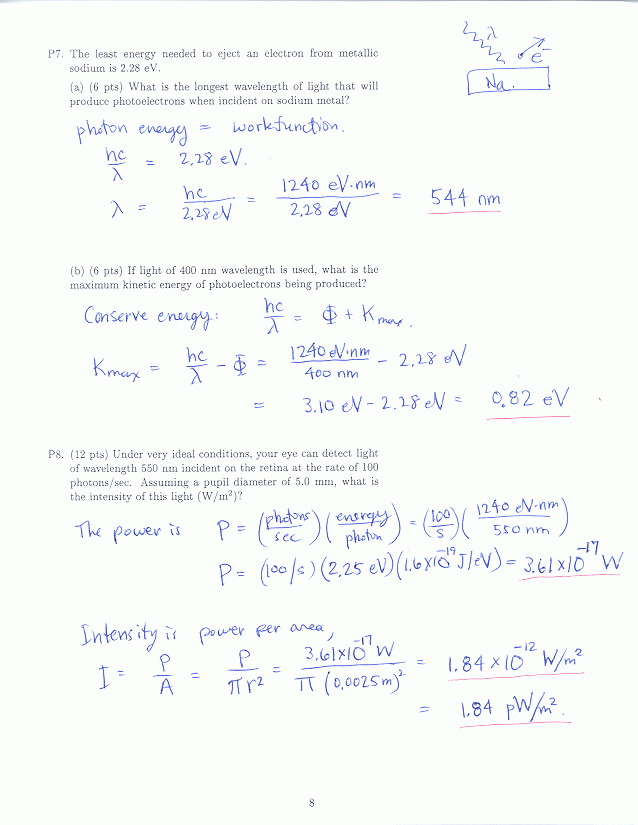 λ
e⁻
Na.
P7. The least energy needed to eject an electron from metallic
sodium is 2.28 eV.
(a) (6 pts) What is the longest wavelength of light that will
produce photoelectrons when incident on sodium metal?
photon energy = workfunction.
hc/λ = 2.28 eV.
λ = hc/2.28 eV = 1240 eV·nm/2.28 eV = 544 nm
(b) (6 pts) If light of 400 nm wavelength is used, what is the
maximum kinetic energy of photoelectrons being produced?
Conserve energy: hc/λ = Φ + Kmax.
Kmax = hc/λ - Φ = 1240 eV·nm/400 nm - 2.28 eV
= 3.10 eV - 2.28 eV = 0.82 eV
P8. (12 pts) Under very ideal conditions, your eye can detect light
of wavelength 550 nm incident on the retina at the rate of 100
photons/sec. Assuming a pupil diameter of 5.0 mm, what is
the intensity of this light (W/m²)?
The power is P = (photons/sec)(energy/photon) = (100/s)(1240 eV·nm/550 nm)
P = (100/s)(2.25 eV)(1.6×10⁻¹⁹ J/eV) = 3.61×10⁻¹⁷ W
Intensity is power per area,
I = P/A = P/πr² = 3.61×10⁻¹⁷ W/π(0.0025m)² = 1.84 × 10⁻¹² W/m²
= 1.84 pW/m².
8